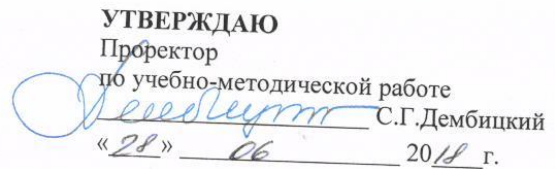 УТВЕРЖДАЮ
Проректор
по учебно-методической работе
С.Г.Дембицкий
«28» 06 2018 г.